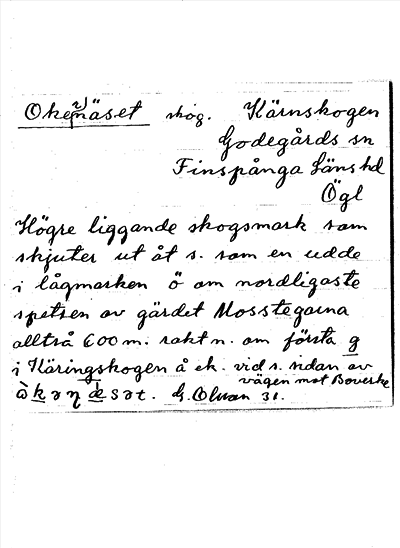 Okenäset skog. Kärnskogen
Godegårds sn
Finspånga Läns hd
Ögl
Högre liggande skogsmark som
skjuter ut åt s. som en udde
i lågmarken ö om nordligaste
spetsen av gärdet Mosstegarna
alltså 600 m. rakt n. om första g
i Käringskogen å ek. vid s. sidan av
vägen mot Boverke
G. Olson 31.